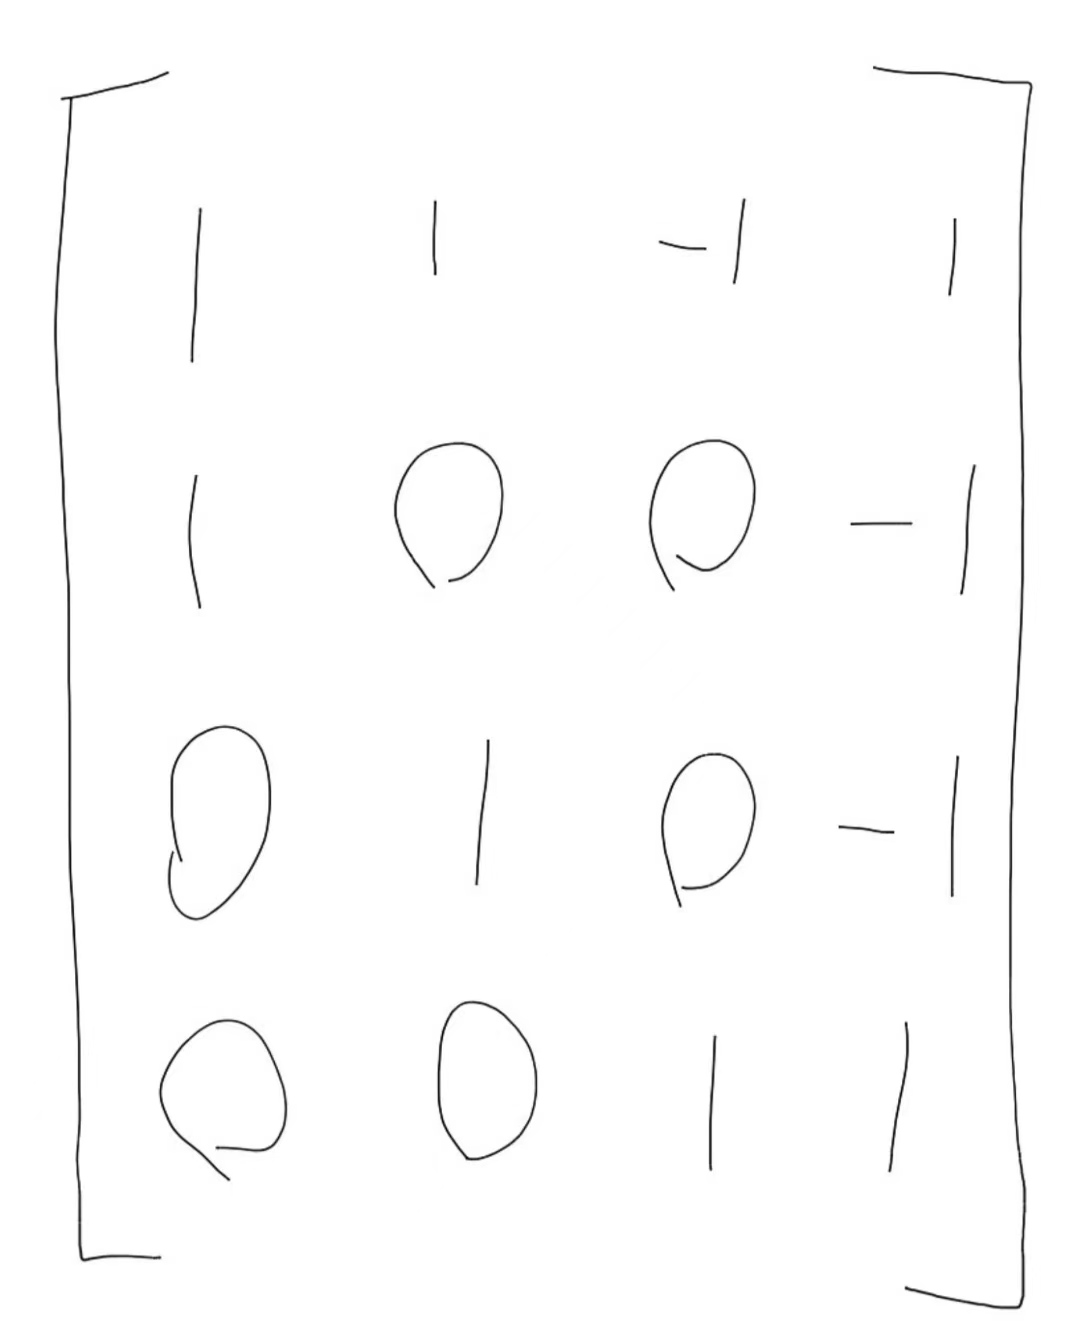 1 1 -1 1
1 0 0 -1
0 1 0 -1
0 0 1 1